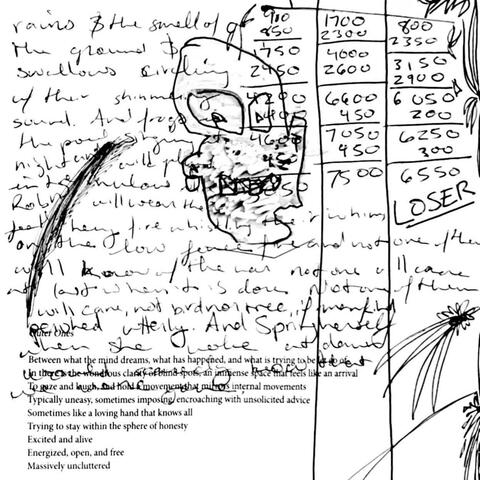 rains & the smell of
the ground &
swallows circling
w/ their shimmering
sound. And frogs
the pools singing
night will
in tremulous
Robins will wear their
feathery fire whistling their whims
on the low fence-wire and not one of them
will know of the war not one will care
at last when it is done. Not one of them
will care, not bird nor tree, if mankind
perished utterly. And Spring herself
when she woke at dawn
910
850
1750
2450
4200
400
4600
450
5050
1700
2300
4000
2600
6600
450
7050
450
7500
800
2350
3150
2900
6050
200
6250
300
6550
LOSER
Outer Ones
Between what the mind dreams, what has happened, and what is trying to be
In that is the wondrous clarity of blind spots, an immense space that feels like an arrival
To gaze and laugh, and hold a movement that mirrors internal movements
Typically uneasy, sometimes imposing/encroaching with unsolicited advice
Sometimes like a loving hand that knows all
Trying to stay within the sphere of honesty
Excited and alive
Energized, open, and free
Massively uncluttered